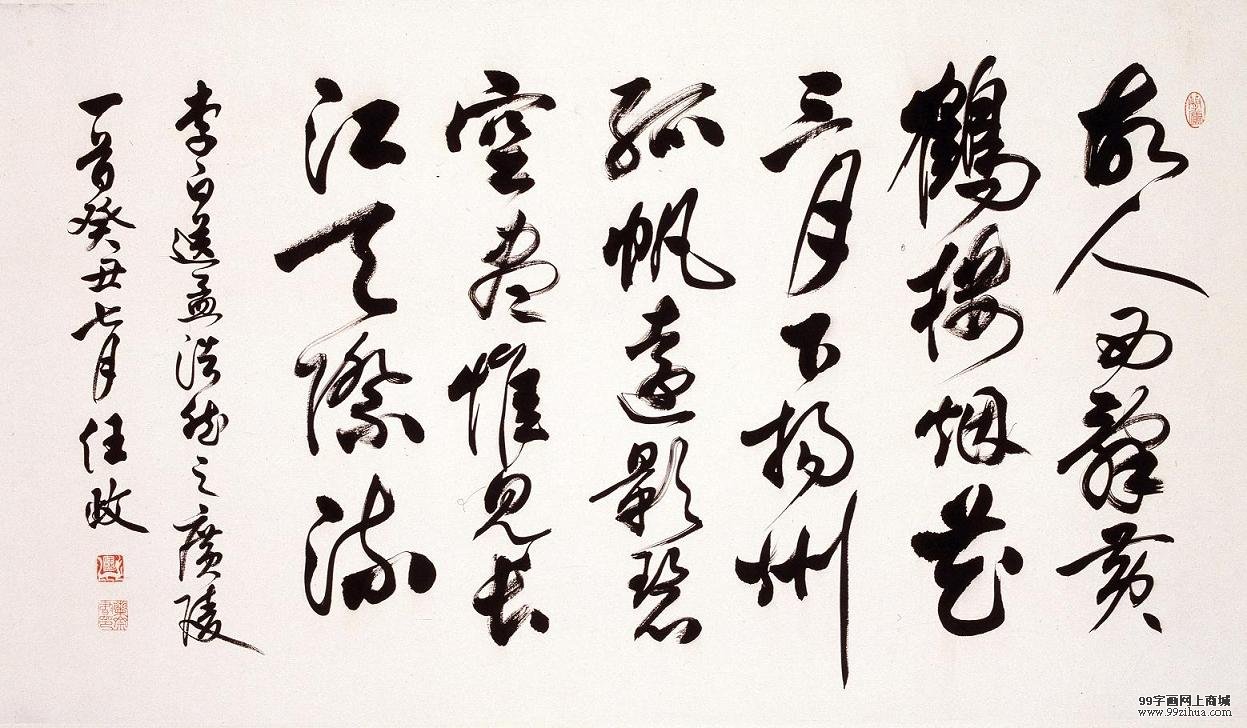 故人西辭黄
鶴樓烟花
三月下揚州
孤帆遠影碧
空盡惟見長
江天際流
李白送孟浩然之廣陵
一首癸丑七月任政
99字画网上商城
www.99zihua.com